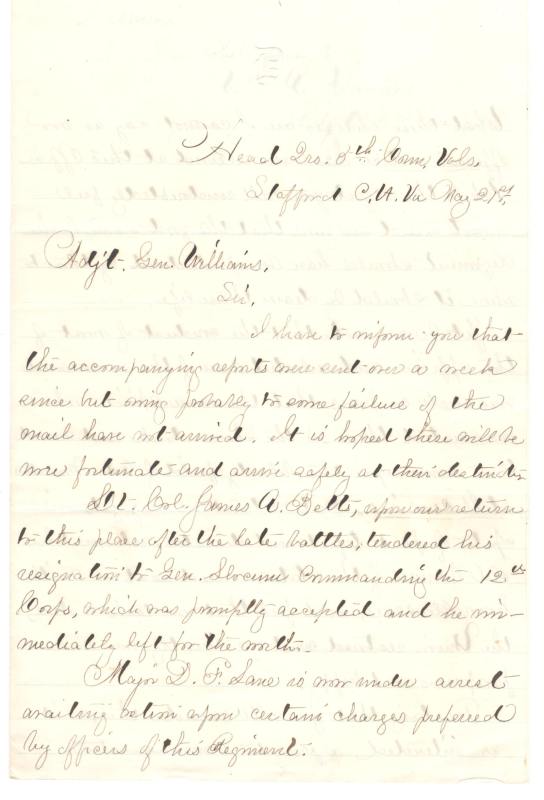 Head Qrs. 5th Conn. Vols.
Stafford C. H. Va May 21st.
Adj't. Gen. Williams,
Sir,
I have to inform you that
the accompanying reports were sent over a week
since but owing probably to some failure of the
mail have not arrived. It is hoped these will be
more fortunate and arrive safely at their
Lt. Col. James A. Betts, upon our return
to this place after the late battles, tendered his
resignation to Gen. Slocum Commanding the 12th
Corps, which was promptly accepted and he im-
mediately left for the north.
Major D. F. Lane is now under arrest
awaiting action upon certain charges preferred
by officers of this Regiment.